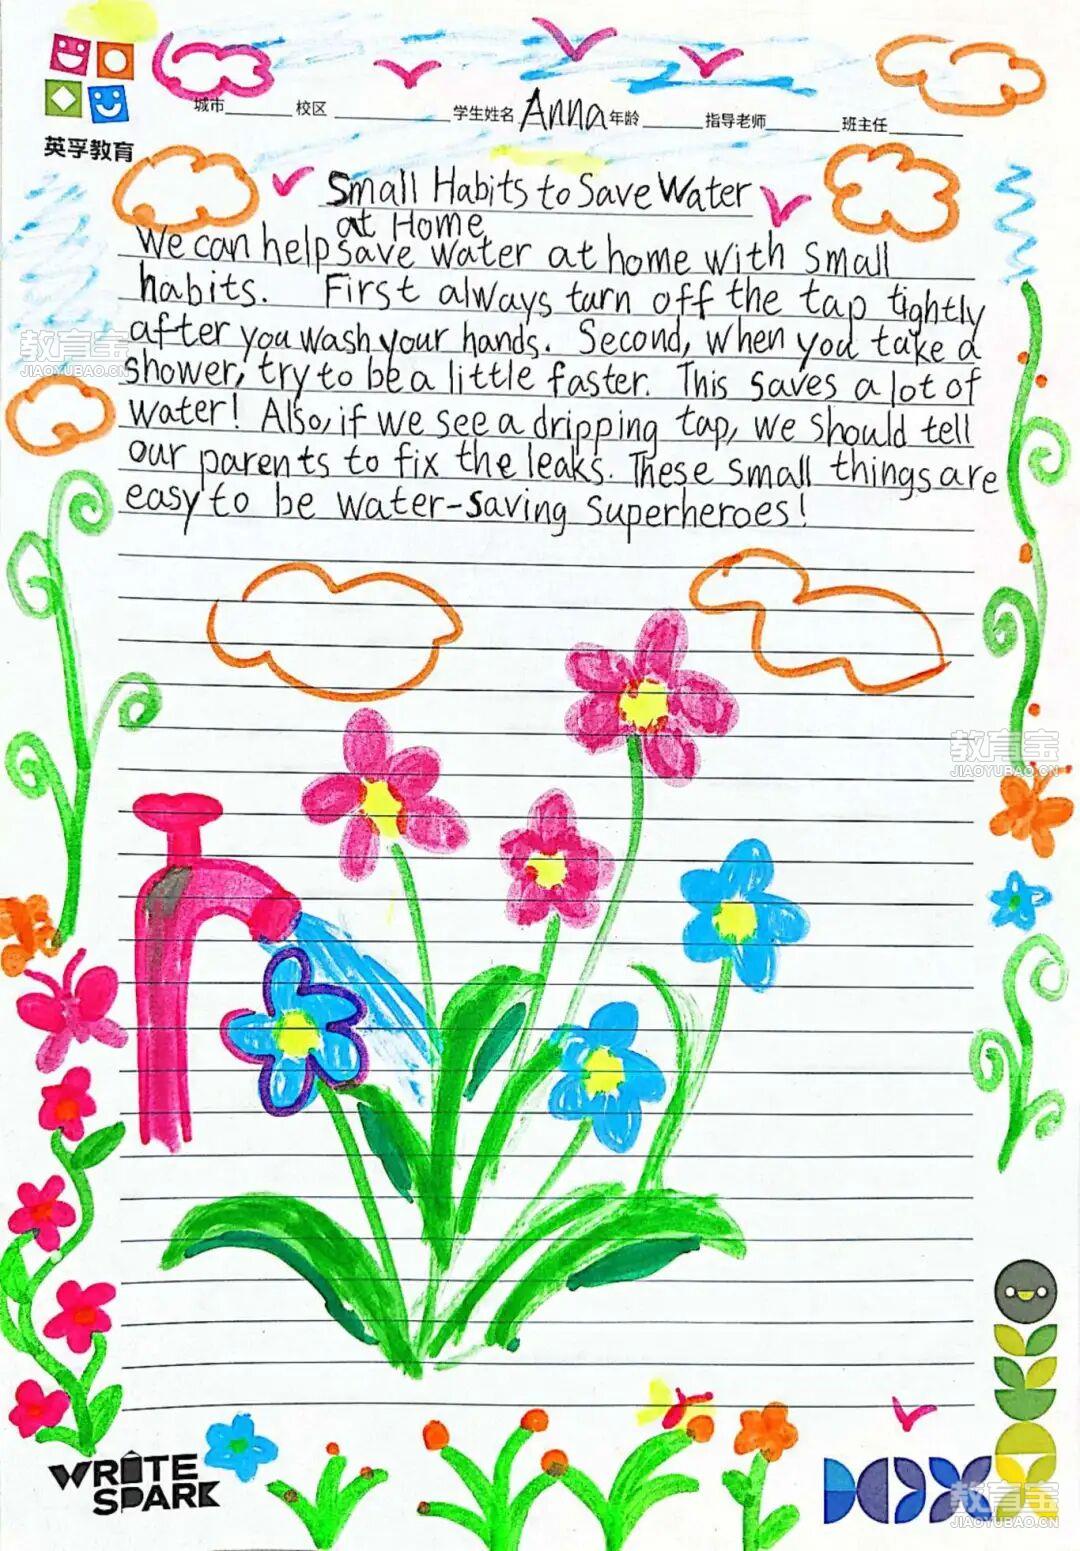 城市 校区 学生姓名 Anna 年龄 指导老师 班主任
英孚教育
Small Habits to Save Water
at Home
We can help save water at home with small
habits. First always turn off the tap tightly
after you wash your hands. Second, when you take a
shower, try to be a little faster. This saves a lot of
water! Also, if we see a dripping tap, we should tell
our parents to fix the leaks. These small things are
easy to be water-saving superheroes!
教育宝
JIAOYUBAO.CN
教育宝
JIAOYUBAO.CN
WRITE
SPARK
教育宝
JIAOYUBAO.CN